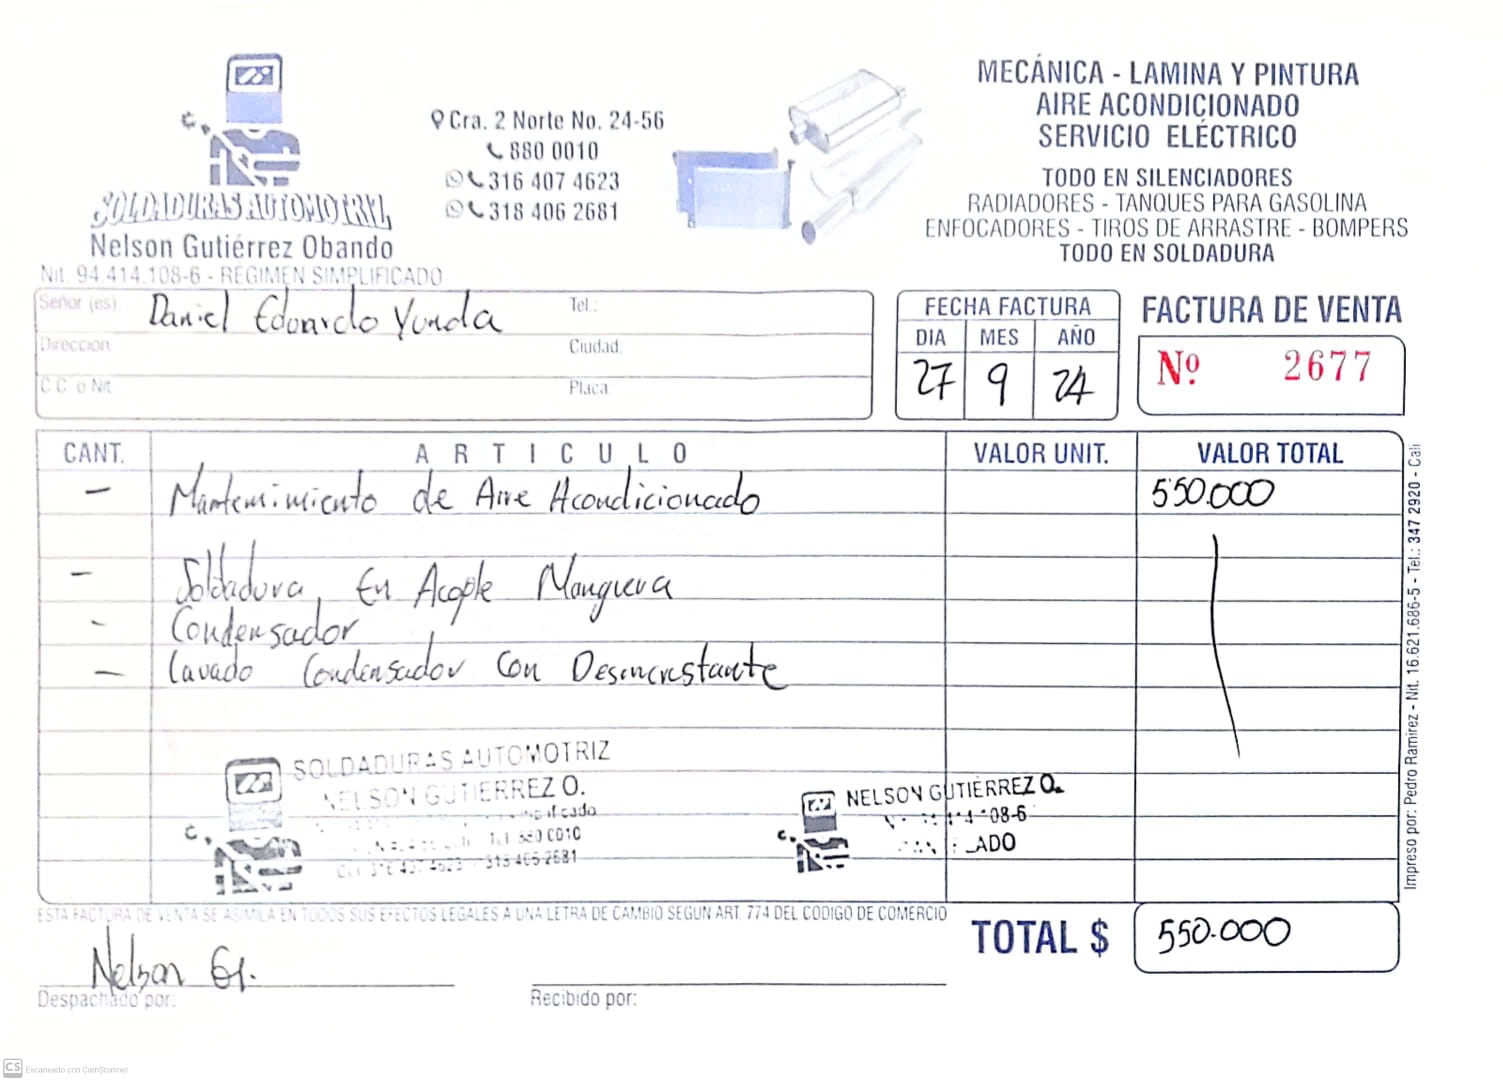 SOLDADURAS AUTOMOTRIZ
Nelson Gutiérrez Obando
Nit. 94.414.108-6 - REGIMEN SIMPLIFICADO
Cra. 2 Norte No. 24-56
880 0010
316 407 4623
318 406 2681
MECÁNICA - LAMINA Y PINTURA
AIRE ACONDICIONADO
SERVICIO ELÉCTRICO
TODO EN SILENCIADORES
RADIADORES - TANQUES PARA GASOLINA
ENFOCADORES - TIROS DE ARRASTRE - BOMPERS
TODO EN SOLDADURA
Señor (es): Daniel Eduardo Yunda Tel.:
Dirección: Ciudad:
C.C. o Nit. Placa:
FECHA FACTURA
DIA MES AÑO
27 9 24
FACTURA DE VENTA
Nº 2677
CANT. ARTICULO VALOR UNIT. VALOR TOTAL
- Mantenimiento de Aire Acondicionado 550.000
- Soldadura, En Acople Manguera
- Condensador
- Lavado Condensador Con Desincrustante
SOLDADURAS AUTOMOTRIZ
NELSON GUTIERREZ O.
Tel 880 0010
NELSON GUTIÉRREZ O.
ESTA FACTURA DE VENTA SE ASIMILA EN TODOS SUS EFECTOS LEGALES A UNA LETRA DE CAMBIO SEGUN ART. 774 DEL CODIGO DE COMERCIO
TOTAL $ 550.000
Nelson G.
Despachado por:
Recibido por:
Impreso por: Pedro Ramirez - Nit. 16.621.686-5 - Tel.: 347 2920 - Cali
CS Escaneado con CamScanner